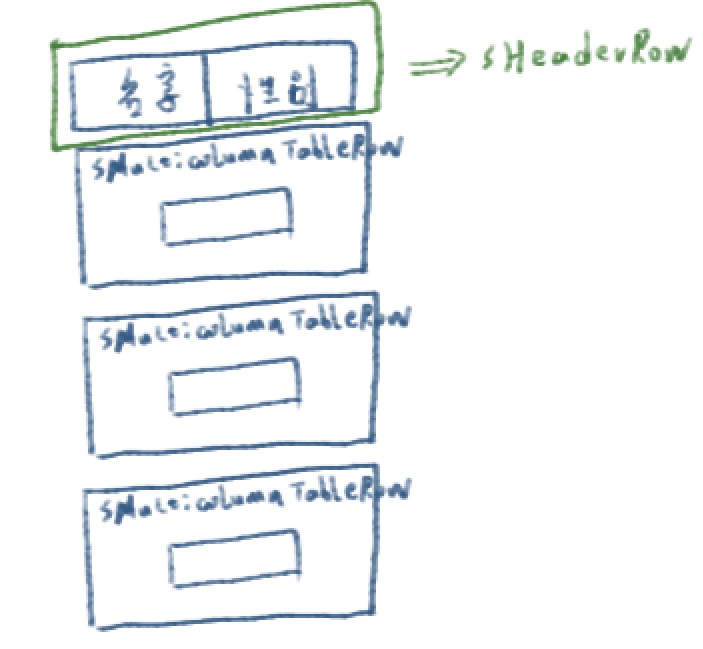 名字 性别 ⇒ SHeaderRow
SMulticolumn TableRow
SMulticolumn TableRow
SMulticolumn TableRow